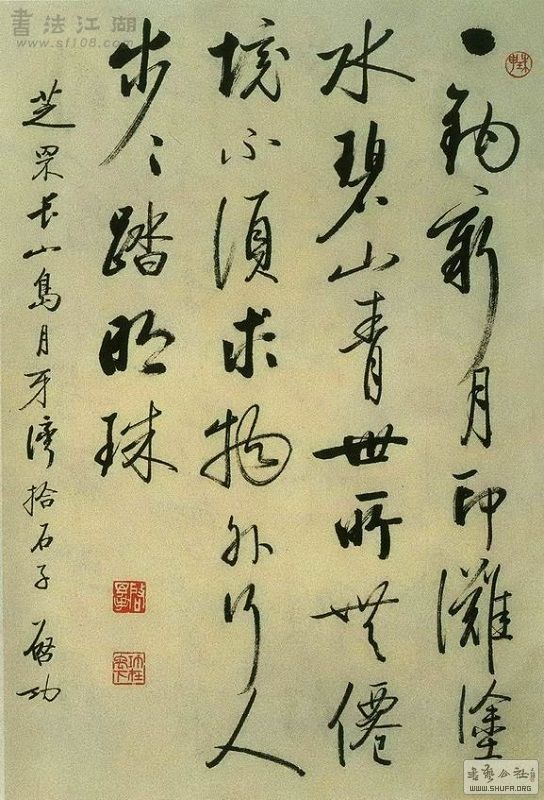 一鉤新月印灘塗
水碧山青世所無僊
境不須求物外行人
步〻踏明珠
芝罘長山島月牙灣拾石子 啟功
書法江湖
www.sf108.com
WWW.SHUFA.ORG